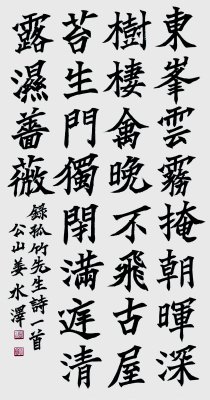 東峯雲霧掩朝暉深
樹棲禽晚不飛古屋
苔生門獨閉滿庭清
露濕薔薇
錄孤竹先生詩一首
公山姜水澤